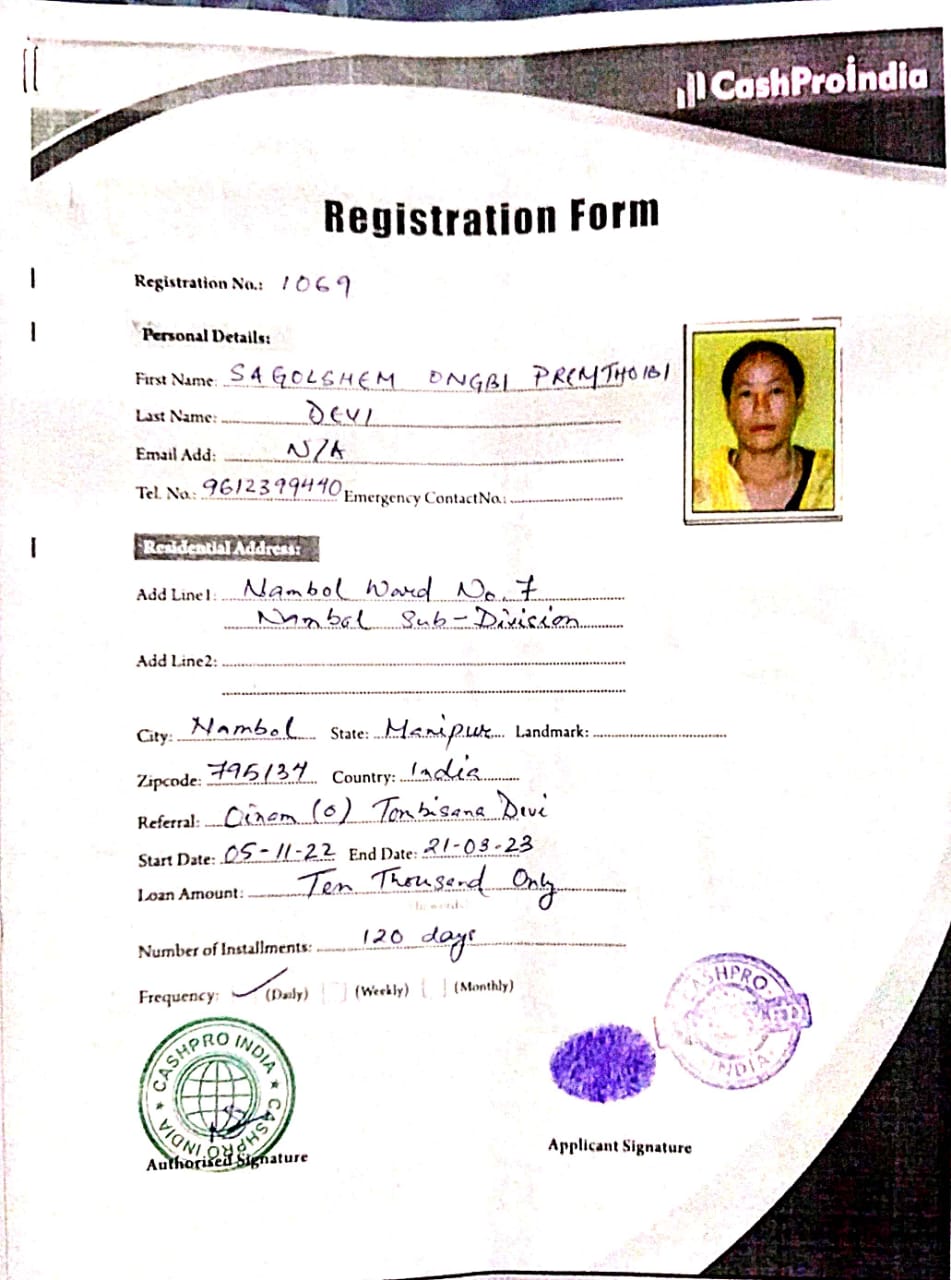 CashProIndia
Registration Form
Registration No.: 1069
Personal Details:
First Name: SAGOLSHEM ONGBI PREMTHOIBI
Last Name: DEVI
Email Add: N/A
Tel. No.: 9612399440 Emergency ContactNo.:
Residential Address:
Add Line1: Nambol Ward No. 7
Nambol Sub-Division
Add Line2:
City: Nambol State: Manipur Landmark:
Zipcode: 795134 Country: India
Referral: Oinam (O) Tombisana Devi
Start Date: 05-11-22 End Date: 21-03-23
Loan Amount: Ten Thousand Only
In words
Number of Installments: 120 days
Frequency: (Daily) (Weekly) (Monthly)
CASHPRO INDIA ★ CASHPRO INDIA ★
CASHPRO INDIA
Authorised Signature
Applicant Signature